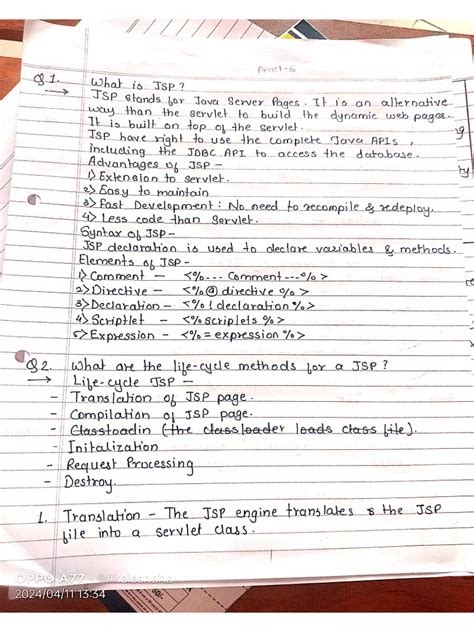 Pract-6
Q1. What is JSP?
→ JSP stands for Java Server Pages. It is an alternative
way than the servlet to build the dynamic web pages.
It is built on top of the servlet.
JSP have right to use the complete Java APIs,
including the JDBC API to access the database.
Advantages of JSP -
1> Extension to servlet.
2> Easy to maintain
3> Fast Development : No need to recompile & redeploy.
4> Less code than Servlet.
Syntax of JSP -
JSP declaration is used to declare variables & methods.
Elements of JSP -
1> Comment - <%--- Comment ---%>
2> Directive - <%@ directive %>
3> Declaration - <%! declaration %>
4> Scriptlet - <% scriplets %>
5> Expression - <%= expression %>
Q2. What are the life-cycle methods for a JSP?
→ Life-cycle JSP -
- Translation of JSP page.
- Compilation of JSP page.
- Classloadin (the classloader loads class file).
- Initalization
- Request Processing
- Destroy.
1. Translation - The JSP engine translates the JSP
file into a servlet class.
OPPO A77
2024/04/11 13:34